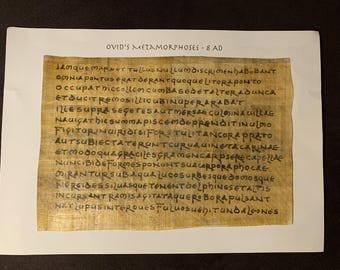 OVID'S METAMORPHOSES - 8 AD
IAMQUEMAREETTELLUSNULLUMDISCRIMENHABEBANT
OMNIAPONTUSERATDERANTQUOQUELITORAPONTO
OCCUPATHICCOLLEMCUMBASEDETALTERADUNCA
ETDUCITREMOSILLICUBINUPERARABAT
ILLESUPRASEGETESAUTMERSAECULMINAVILLAE
NAVIGATHICSUMMAPISCEMDEPRENDITINULMO
FIGITURINVIRIDISIFORSTULITANCORAPRATO
AUTSUBIECTATERUNTCURVAEVINETACARINAE
ETMODOQUAGRACILESGRAMENCARPSERECAPELLAE
NUNCIBIDEFORMESPONUNTSUACORPORAPHOCAE
MIRANTURSUBAQUALUCOSURBESQUEDOMOSQUE
NEREIDESSILVASQUETENENTDELPHINESETALTIS
INCURSANTRAMISAGITATAQUEROBORAPULSANT
NATLUPUSINTEROVESFULVOSVEHITUNDALEONES